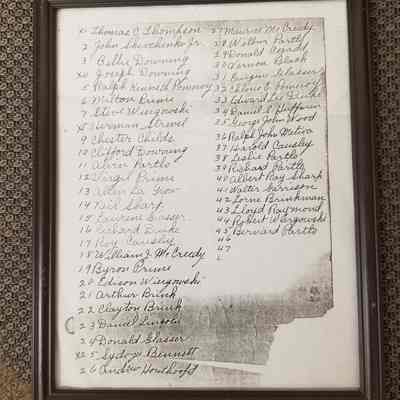 x1 Thomas C Thompson
2 John Shevchenko Jr.
3 Downing
x4 Joseph Downing
5 Ralph Kenneth Pomeroy
6 Milton Prime
7 Steve Wiergowski
x8 Herman Strevel
9 Chester Childs
10 Clifford Downing
11 Partlo
12 Prime
13 Allen La
14 Sharp
15 Laurene Glasser
16 Richard Drinke
17 Roy Causley
18 William J. McCredy
19 Byron Prime
20 Edison Wiergowski
21 Arthur Brink
22 Clayton Brink
23 Daniel Lincoln
24 Donald Glasser
x25 Bennett
26 Andrew
27 Maurice McCredy
28 Wilbur Partlo
29 Donald
30 Vernon
31 Eugene Glasser
32
33 Edward
34 Daniel E
35 George John Wood
36 Ralph John Metiva
37 Harold Causley
38 Leslie Partlo
39 Richard Partlo
40 Albert Ray Sharp
41 Walter Garrison
42 Lorne Brinkman
43 Lloyd Raymond
44 Robert Wiergowski
45 Bernard Partlo
46
47